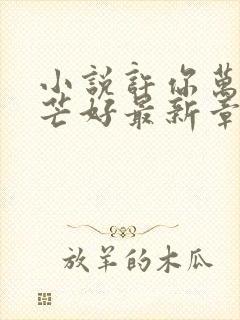 小說許你萬
芒好最新章
放羊的木瓜